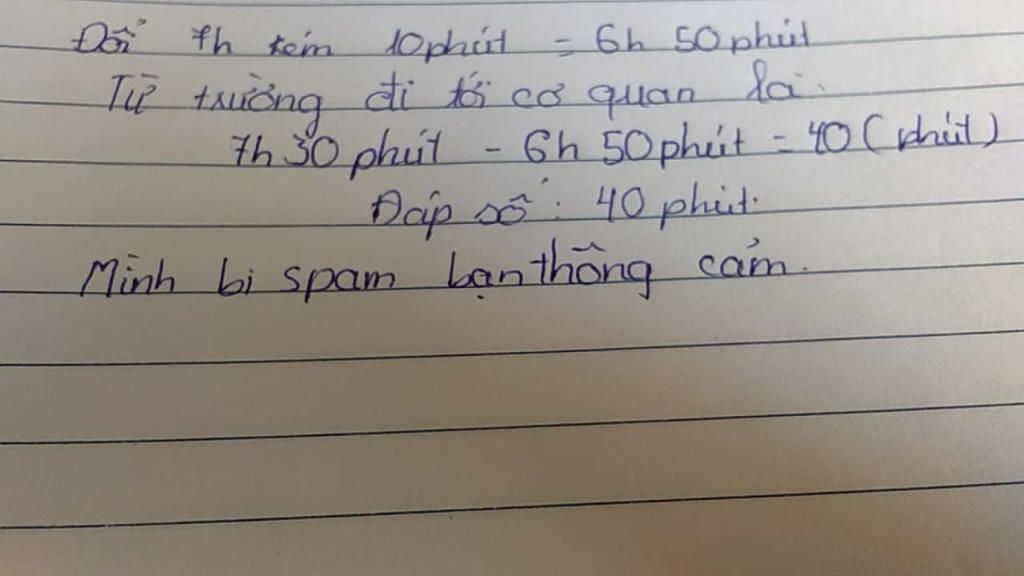 Đổi 7h kém 10 phút = 6h 50 phút
Từ trường đi tới cơ quan là:
7h 30 phút - 6h 50 phút = 40 (phút)
Đáp số: 40 phút.
Mình bị spam bạn thông cảm.